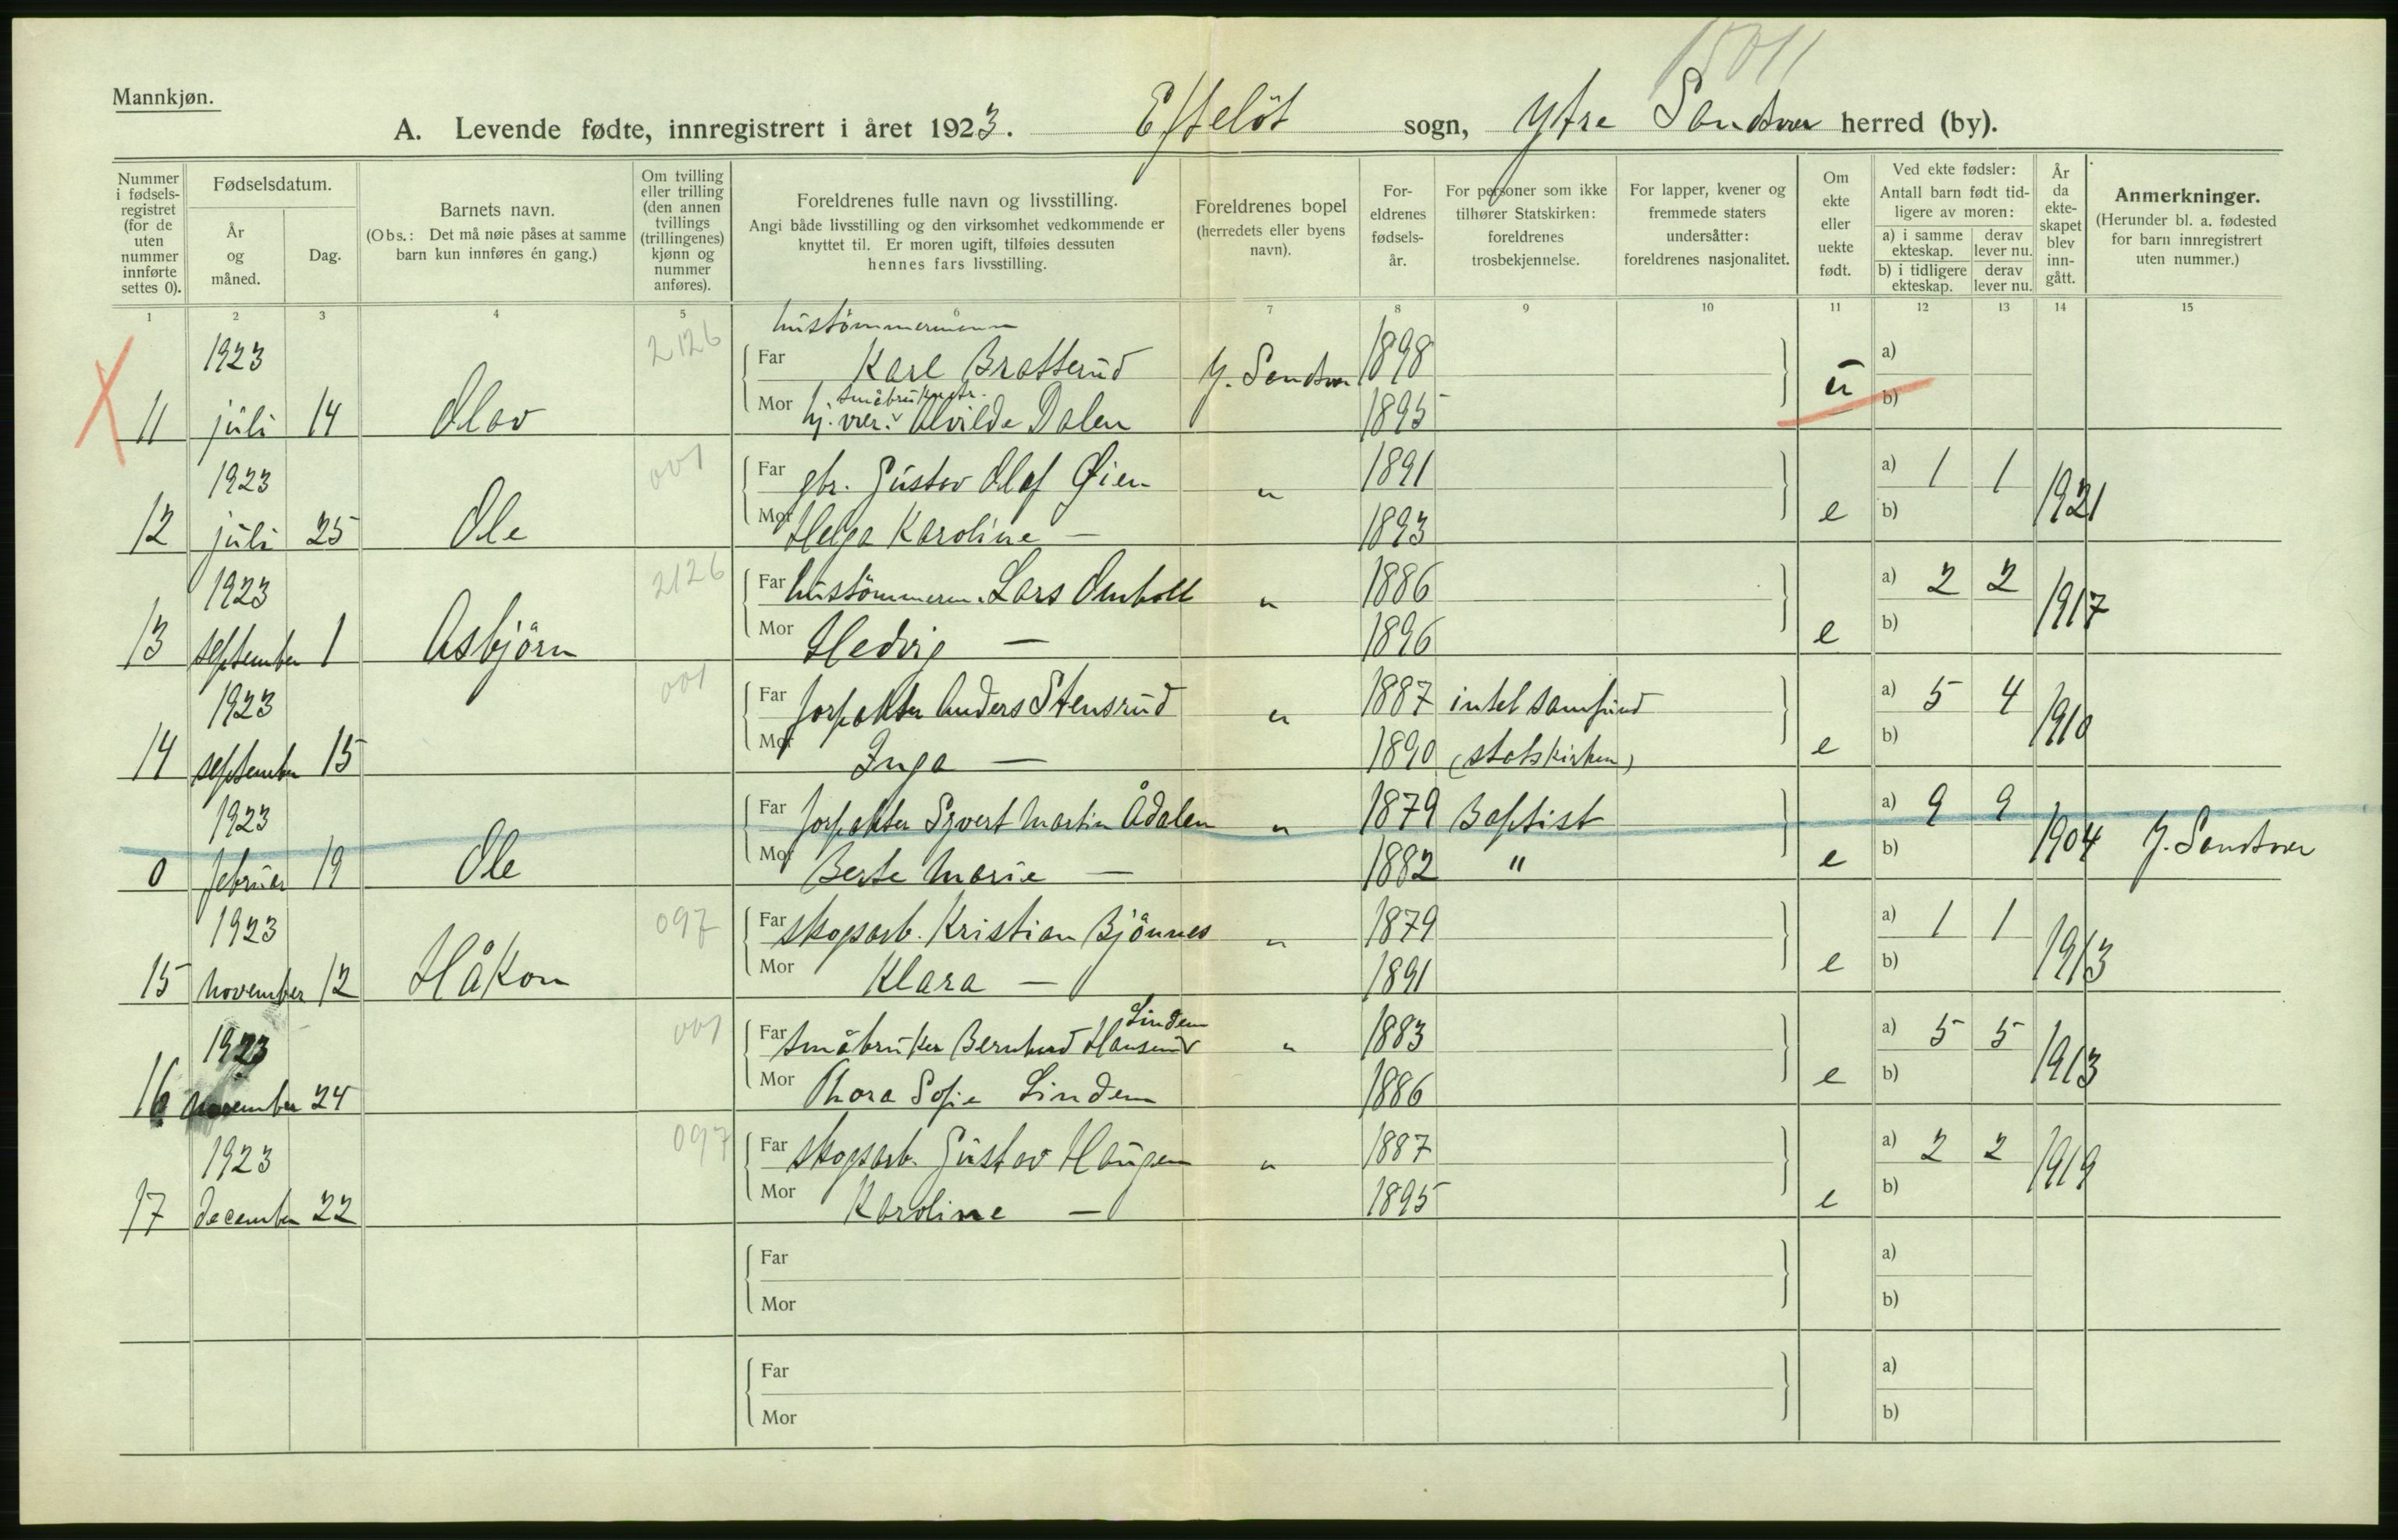 15011
Mannkjøn.
A. Levende fødte, innregistrert i året 1923. Efteløt sogn, Ytre Sandsvær herred (by).
Nummer i fødsels-registret (for de uten nummer innførte settes 0).
Fødselsdatum.
År og måned.
Dag.
Barnets navn.
(Obs.: Det må nøie påses at samme barn kun innføres én gang.)
Om tvilling eller trilling (den annen tvillings (trillingenes) kjønn og nummer anføres).
Foreldrenes fulle navn og livsstilling.
Angi både livsstilling og den virksomhet vedkommende er knyttet til. Er moren ugift, tilføies dessuten hennes fars livsstilling.
Foreldrenes bopel (herredets eller byens navn).
For-eldrenes fødsels-år.
For personer som ikke tilhører Statskirken: foreldrenes trosbekjennelse.
For lapper, kvener og fremmede staters undersåtter: foreldrenes nasjonalitet.
Om ekte eller uekte født.
Ved ekte fødsler: Antall barn født tid-ligere av moren:
a) i samme ekteskap.
derav lever nu.
b) i tidligere ekteskap.
derav lever nu.
År da ekte-skapet blev inn-gått.
Anmerkninger.
(Herunder bl. a. fødested for barn innregistrert uten nummer.)
1 2 3 4 5 6 7 8 9 10 11 12 13 14 15
hustömmermann
1923 2126 Far Karl Bratterud Y. Sandsvær 1898 a)
småbruker dtr.
11 juli 14 Olav Mor hj. vær. Alvilde Dalen 1895 u b)
1923 001 Far gbr. Gustav Olaf Øien " 1891 a) 1 1
12 juli 25 Ole Mor Helga Karoline — 1893 e b) 1921
1923 2126 Far hustömmerm. Lars Omholt " 1886 a) 2 2
13 september 1 Asbjörn Mor Hedvig — 1896 e b) 1917
1923 001 Far forpakter Anders Stensrud " 1887 intet samfund a) 5 4
14 september 15 Mor Inga — 1890 (statskirken) e b) 1910
1923 Far forpakter Syvert Martin Ådalen " 1879 Baptist a) 9 9
0 februar 19 Ole Mor Berte Marie — 1882 " e b) 1904 Y. Sandsvær
1923 097 Far skogsarb. Kristian Bjönnes " 1879 a) 1 1
15 november 12 Håkon Mor Klara — 1891 e b) 1913
Lindem
1923 001 Far småbruker Bernhard Hansen " 1883 a) 5 5
16 november 24 Mor Thora Sofie Lindem 1886 e b) 1913
1923 097 Far skogsarb. Gustav Haugen " 1887 a) 2 2
17 december 22 Mor Karoline — 1895 e b) 1919
Far a)
Mor b)
Far a)
Mor b)